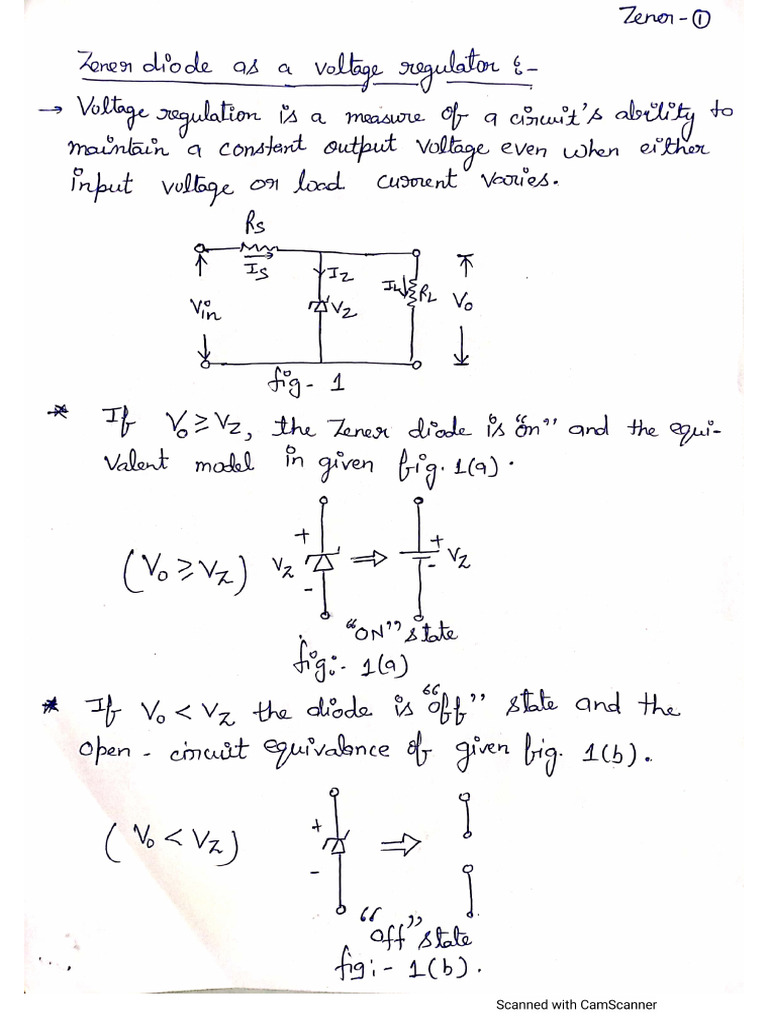 Zener - ①
Zener diode as a voltage regulator :-
→ Voltage regulation is a measure of a circuit's ability to
maintain a constant output voltage even when either
input voltage or load current varies.
Rs
Is
Iz
Vz
IL
RL
Vo
Vin
fig - 1
* If Vo ≥ Vz, the Zener diode is "on" and the equi-
valent model in given fig. 1(a).
(Vo ≥ Vz)
+
Vz
-
⇒
+
-
Vz
"ON" state
fig:- 1(a)
* If Vo < Vz the diode is "off" state and the
open - circuit equivalence of given fig. 1(b).
(Vo < Vz)
+
-
⇒
"off" state
fig:- 1(b).
Scanned with CamScanner